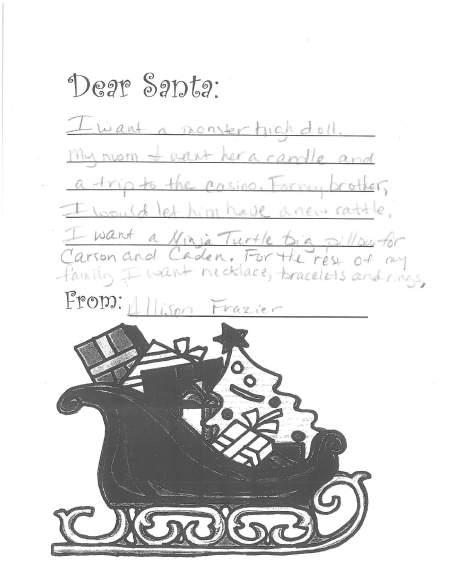 Dear Santa:
I want a monster high doll.
My mom I want her a candle and
a trip to the casino. For my brother,
I would let him have a new rattle.
I want a Ninja Turtle big pillow for
Carson and Caden. For the rest of my
family I want necklace, bracelets and rings.
From: Allison Frazier